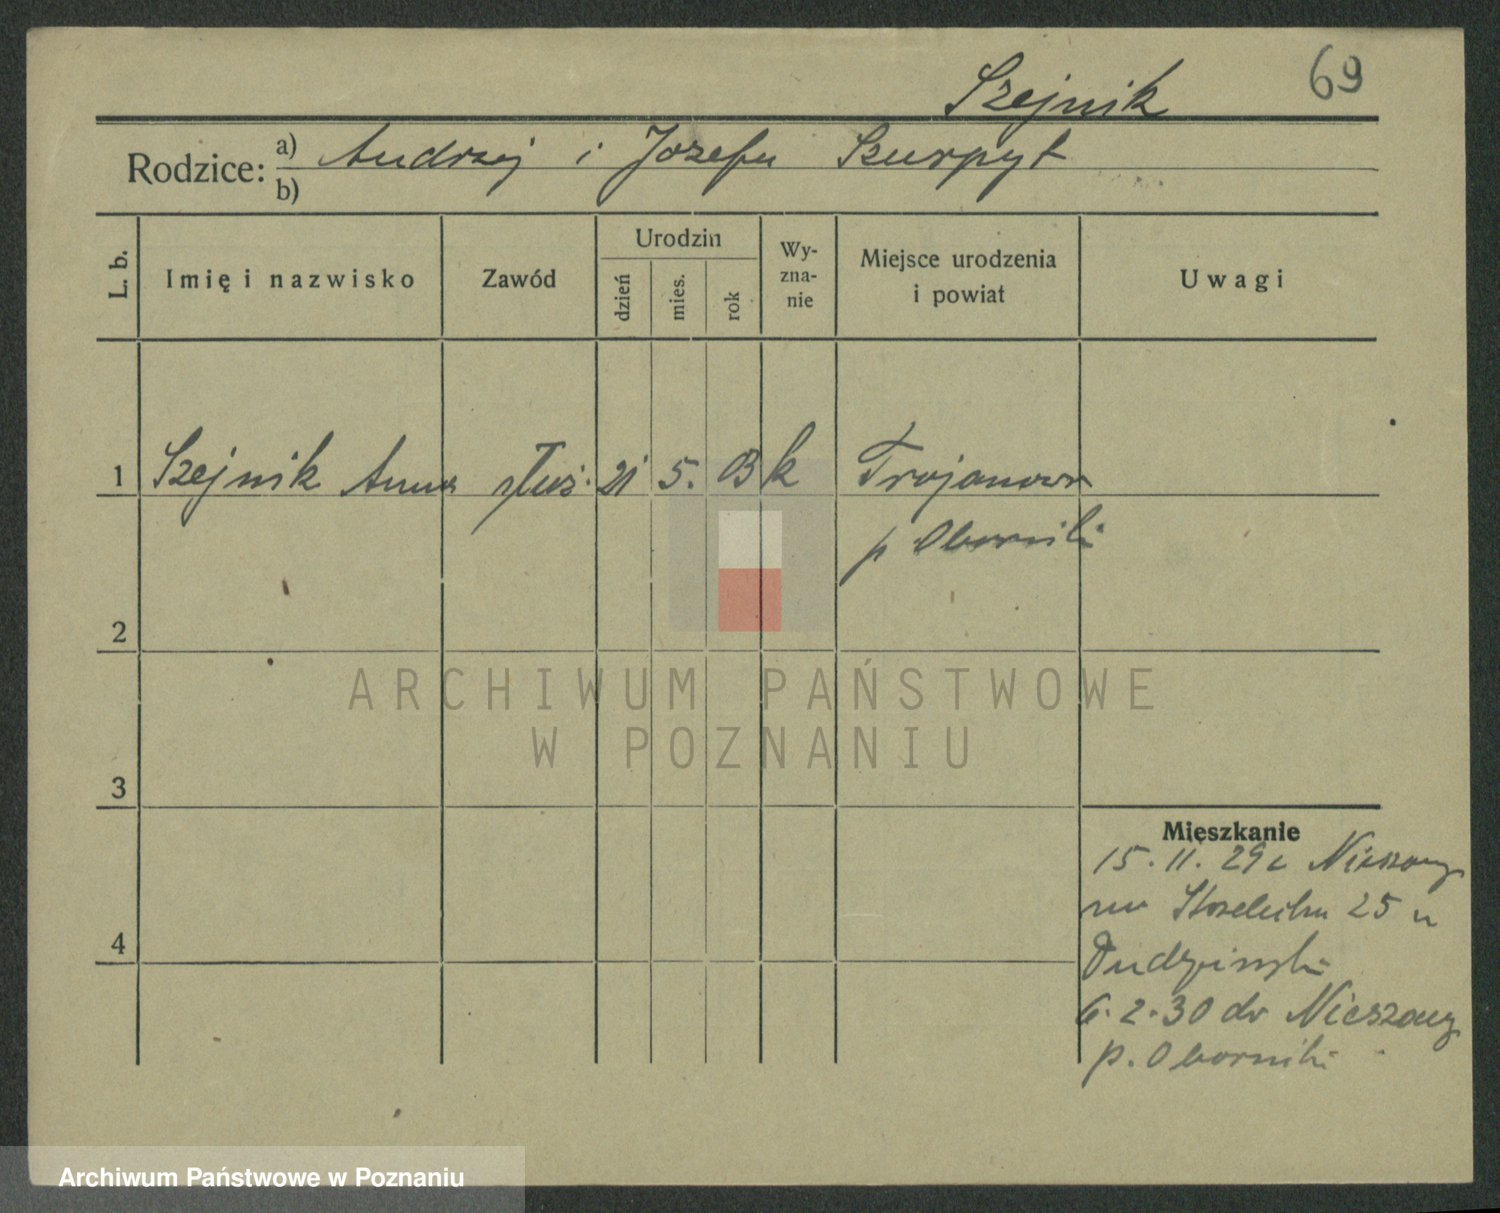 Szejnik
69
Rodzice:
a) Andrzej i Józefa Szurpyt
b)
L. b.
Imię i nazwisko
Zawód
Urodzin
dzień
mies.
rok
Wy-
zna-
nie
Miejsce urodzenia
i powiat
Uwagi
1 Szejnik Anna służ. 21 5. 03 k Trojanowo
p Oborniki
2
3
4
Mieszkanie
15. 11. 29 z
na 25 u
6. 2. 30 do
p. Oborniki
ARCHIWUM PAŃSTWOWE
W POZNANIU
Archiwum Państwowe w Poznaniu